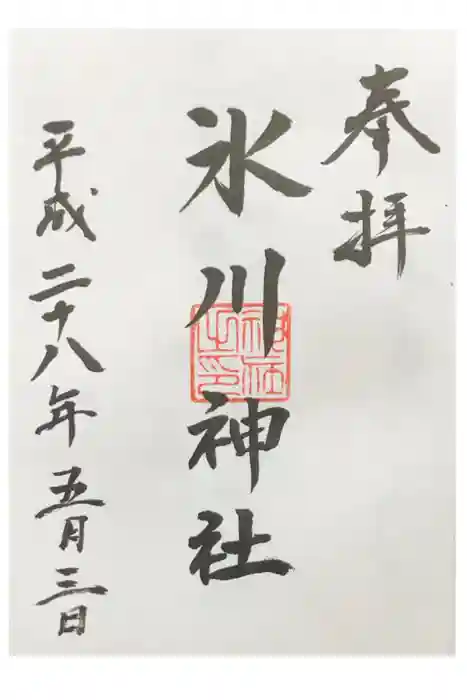 奉拝
氷川神社
神社之印
平成二十八年五月三日